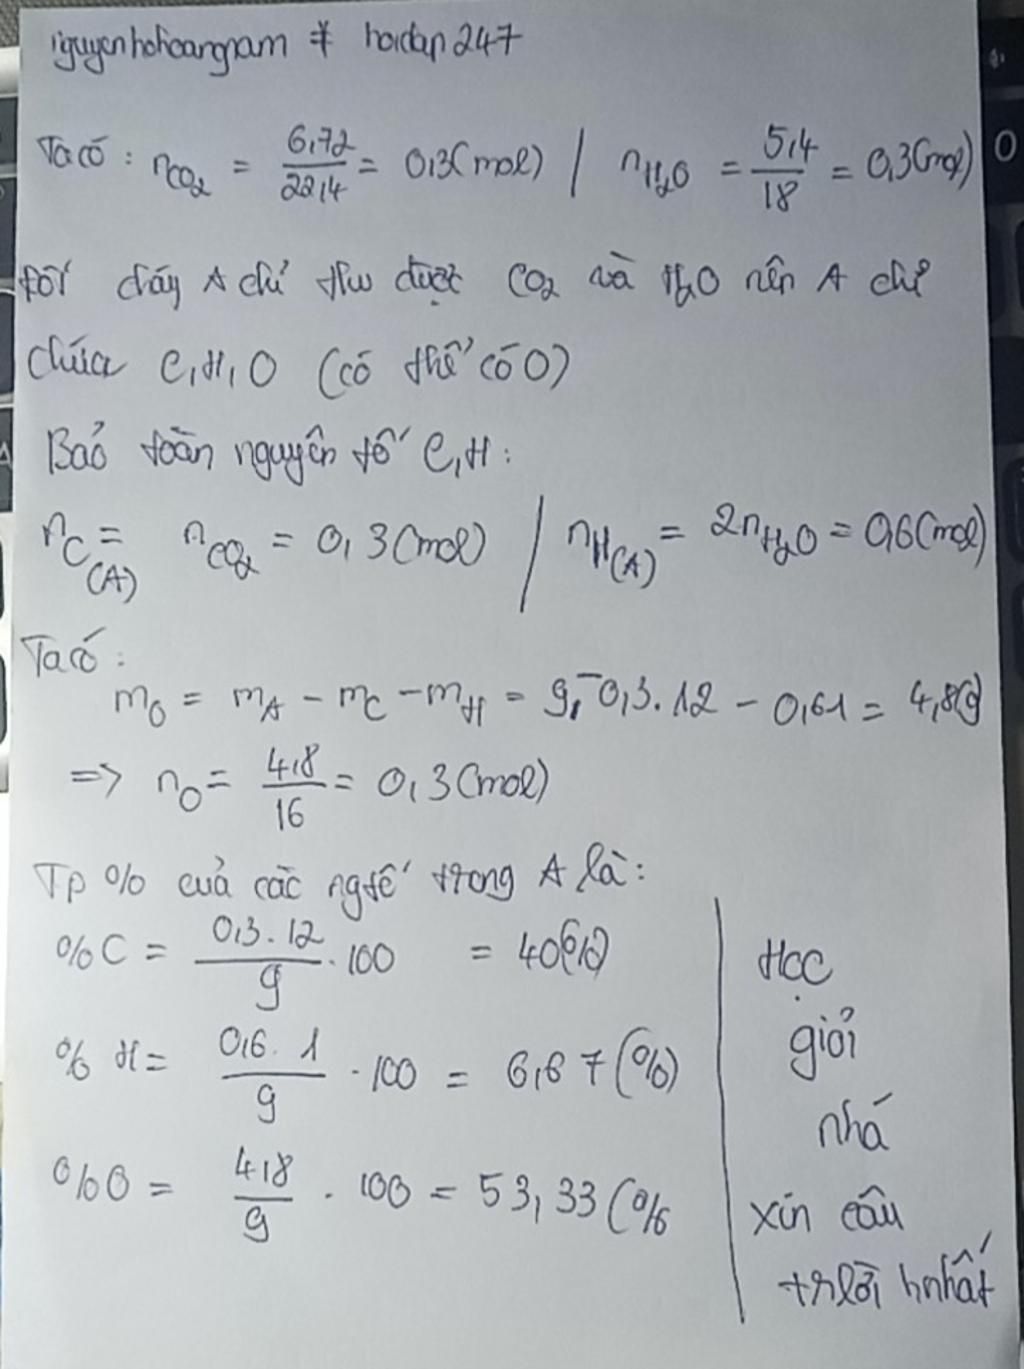 nguyenhohoangnam # hoidap247
Ta có : nCO2 = 6,72/22,4 = 0,3(mol) | nH2O = 5,4/18 = 0,3(mol)
Đốt cháy A chỉ thu được CO2 và H2O nên A chỉ
chứa C, H, O (có thể có O)
Bảo toàn nguyên tố C, H :
nC(A) = nCO2 = 0,3(mol) | nH(A) = 2nH2O = 0,6(mol)
Ta có :
mO = mA - mC - mH = 9 - 0,3.12 - 0,6.1 = 4,8(g)
=> nO = 4,8/16 = 0,3(mol)
Tp % của các ngtố trong A là :
%C = 0,3.12/9 . 100 = 40(%)
%H = 0,6.1/9 . 100 = 6,67(%)
%O = 4,8/9 . 100 = 53,33(%
Học
giỏi
nhá
xin câu
trlời hnhất